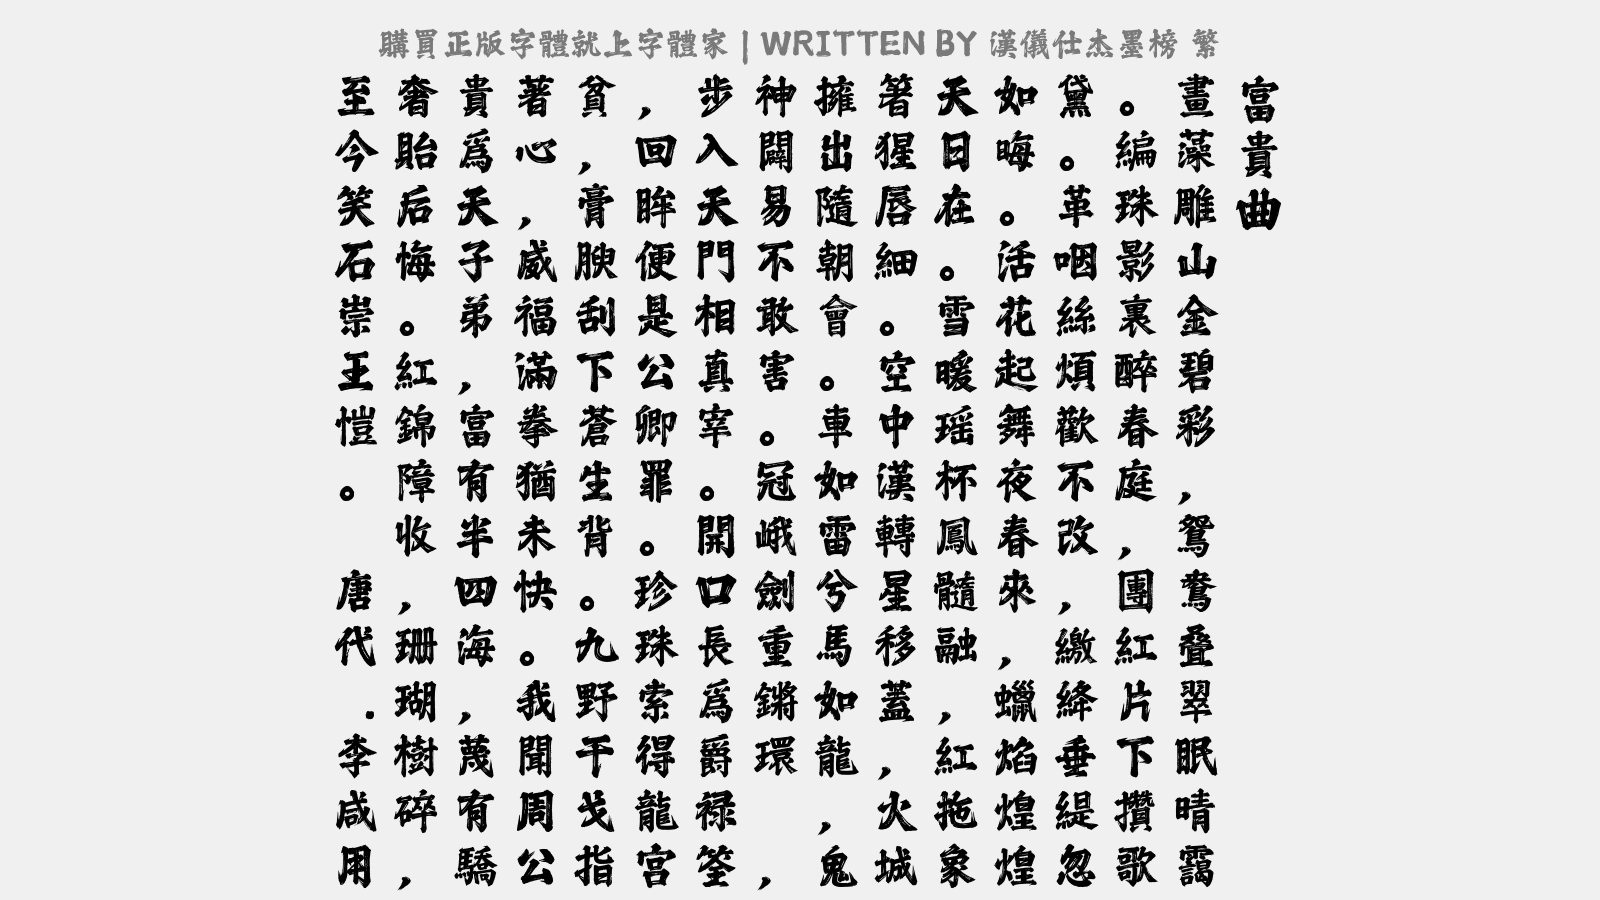 購買正版字體就上字體家 | WRITTEN BY 漢儀仕杰墨榜 繁
富貴曲
畫藻雕山金碧彩，鴛鴦叠翠眠晴靄
。編珠影裏醉春庭，團紅片下攢歌
黛。革咽絲煩歡不改，繳絳垂緹忽
如晦。活花起舞夜春來，蠟焰煌煌
天日在。雪暖瑶杯鳳髓融，紅拖象
箸猩唇細。空中漢轉星移蓋，火城
擁出隨朝會。車如雷兮馬如龍，鬼
神闢易不敢害。冠峨劍重鏘環，
步入天門相真宰。開口長爲爵禄筌
，回眸便是公卿罪。珍珠索得龍宮
貧，膏腴刮下蒼生背。九野干戈指
著心，威福滿拳猶未快。我聞周公
貴爲天子弟，富有半四海，蔑有驕
奢貽后悔。紅錦障收，珊瑚樹碎，
至今笑石崇王愷。 唐代.李咸用